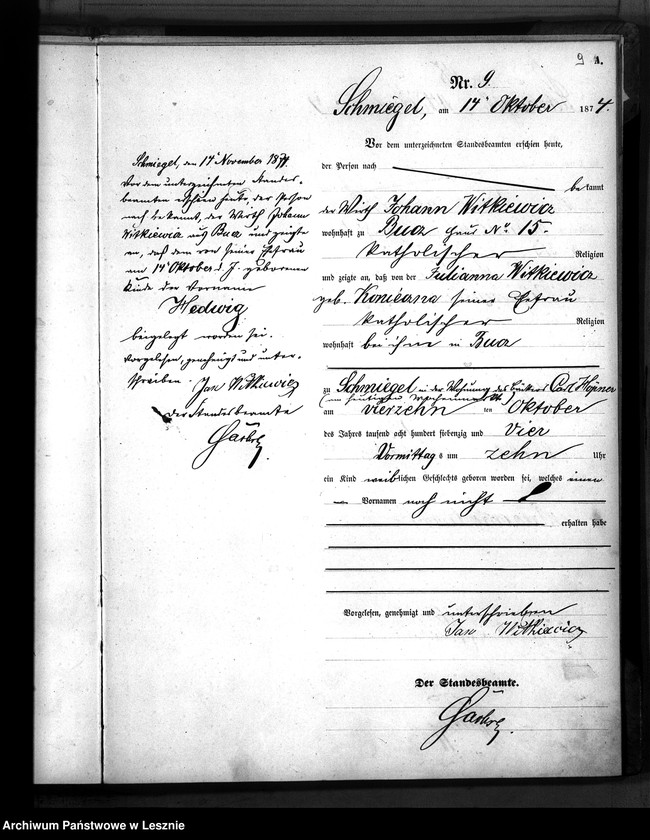 9 A.
Nr. 9.
Schmiegel, am 14 Oktober 1874.
Vor dem unterzeichneten Standesbeamten erschien heute,
der Person nach
bekannt
der Wirth Johann Witkiewicz
wohnhaft zu Bucz Haus No 15.
katholischer Religion
und zeigte an, daß von der Julianna Witkiewicz
geb. seiner Ehefrau
katholischer Religion
wohnhaft bei ihm in Bucz
zu Schmiegel in der Wohnung des Carl
(am heutigen
am vierzehn ten Oktober
des Jahres tausend acht hundert siebenzig und vier
Vormittags um zehn Uhr
ein Kind weiblichen Geschlechts geboren worden sei, welches einen
Vornamen noch nicht
erhalten habe
Vorgelesen, genehmigt und unterschrieben
Jan Witkiewicz
Der Standesbeamte.
Schmiegel, den 14 November 1874.
Vor dem unterzeichneten Standes-
beamten erschien heute, der Person
nach bekannt, der Wirth Johann
Witkiewicz aus Bucz und zeigte
an, daß dem von seiner Ehefrau
am 14 Oktober d. J. geborenen
Kinde der Vorname
Hedwig
beigelegt worden sei.
Vorgelesen, genehmigt und unter-
schrieben Jan Witkiewicz
Der Standesbeamte
Archiwum Państwowe w Lesznie